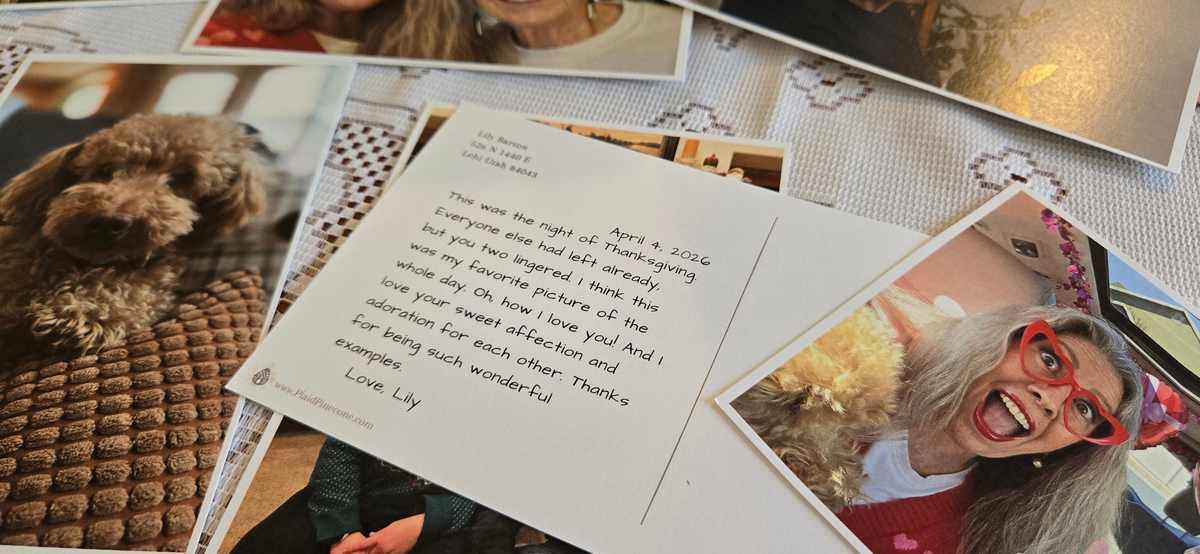 Lily Barron
526 N 1440 E
Lehi Utah 84043
April 4, 2026
This was the night of Thanksgiving.
Everyone else had left already,
but you two lingered. I think this
was my favorite picture of the
whole day. Oh, how I love you! And I
love your sweet affection and
adoration for each other. Thanks
for being such wonderful
examples.
Love, Lily
www.PlaidPinecone.com